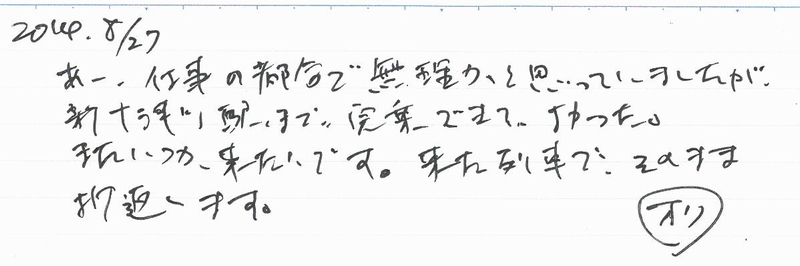 2014.8/27
あー、仕事の都合で無理かと思っていましたが、
新十津川駅まで完乗できて、よかった。
またいつか、来たいです。来た列車で、そのまま
折返します。
オリ